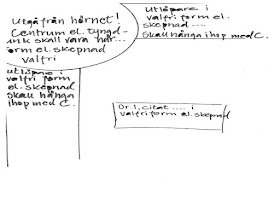 Utgå från hörnet!
Centrum el. tyngd-
unk skall vara här...
orm el. skepnad
valfri
Utlöpare i
valfri form el.
skepnad....
Skall hänga ihop med C.
utlöpare i
valfri form
el. skepnad
skall hänga
ihop med C.
Ord, citat.... i
valfri form el. skepnad